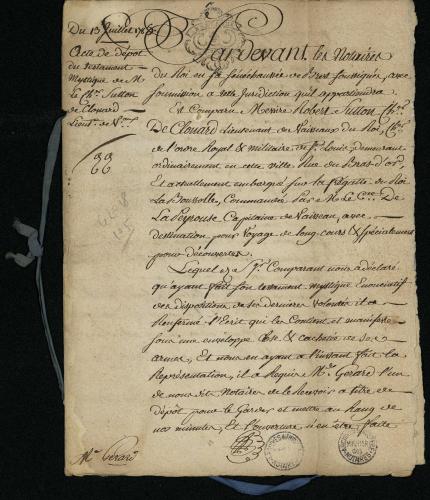 Du 13 Juillet 1785
Acte de dépot
du testament
Mystique de M.
Le Cher. Sutton
de Clonard
Lieut. de Vau.
Pardevant les Notaires
du Roi en sa sénéchaussée de Brest soussignés, avec
soumission à cette Juridiction qu'il appartiendra
Est Comparu Messire Robert Sutton Cher.
De Clonard Lieutenant des Vaisseaux du Roi, Cher.
de l'ordre Royal & militaire de St. Louis, demeurant
ordinairement en cette ville Rue du Bras d'or,
Et actuellement embarqué sur la frégatte du Roi
La Boussolle, Commandée par M. Le Cte. De
La Peyrouse Capitaine de Vaisseau, avec
destination pour voyage de long cours & spécialement
pour découvertes.
Lequel Sr. Comparant nous a déclaré
qu'ayant fait son testament mystique Enonciatif
des dispositions de ses dernières volontés il a
Renfermé l'Ecrit qui les Contient et manifeste
sous une enveloppe close & cachetée de ses
armes, Et nous en ayant à l'instant fait la
Représentation, il a Requis Me. Gerard l'un
de nous dits Notaires de le Recevoir à titre de
dépot pour le Garder et mettre au Rang de
ses minutes, Et l'ouverture n'en être faite
Me. Gerard